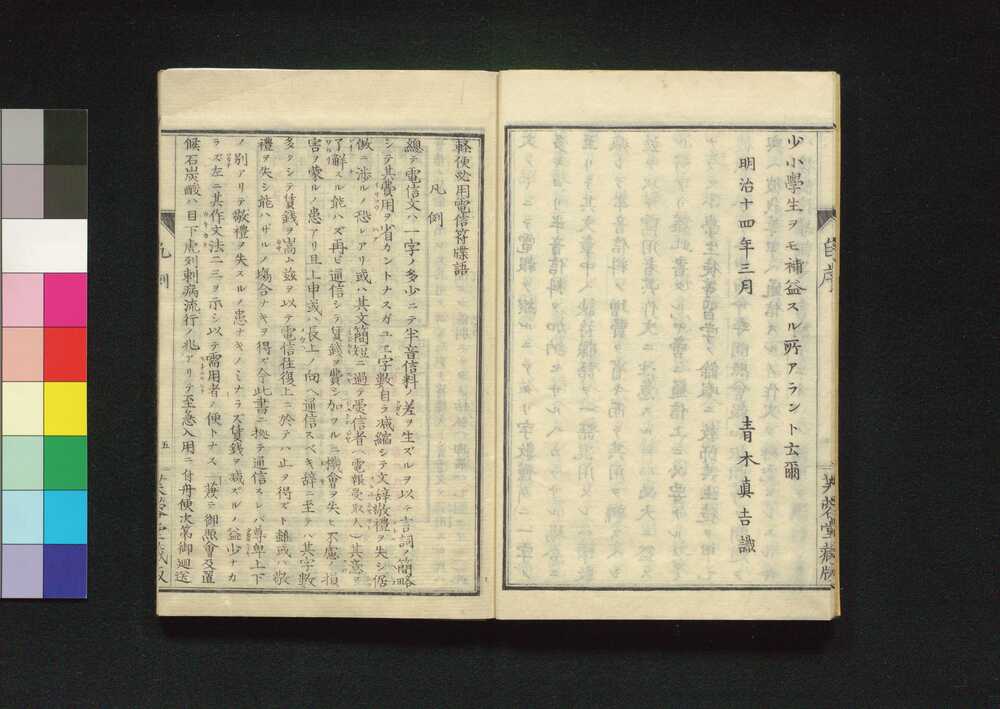 少小學生ヲモ補益スル所アラント云爾
明治十四年三月
青木眞吉識
自序
芙蓉堂藏版
輕便必用電信符牒語
凡例
總テ電信文ハ一字ノ多少ニテ半音信料ノ差ヲ生ズルヲ以テ言詞ノ簡略ニ
シテ其費用ヲ省カントナスガユエ字數自ラ減縮シテ文辞敬禮ヲ失シ倨
傲ニ渉ルノ恐レアリ或ハ其文簡短ニ過テ受信者(電報受取人)其意ヲ
了解スル能ハズ再ビ通信シテ賃錢ヲ費シ加フルニ機會ヲ失ヒ不慮ノ損
害ヲ蒙ルノ患アリ且上申或ハ長上ノ向ヘ通信スベキ辞ニ至テハ其字數
多クシテ賃錢ヲ嵩ム故ヲ以テ電信往復上ニ於テハ止ヲ得ズト雖或ハ敬
禮ヲ失シ能ハザルノ場合ナキヲ得ズ今此書ニ據テ通信スレバ尊卑上下
ノ別アリテ敬禮ヲ失スルノ患ナキノミナラズ賃錢ヲ減ズルノ益少ナカ
ラズ左ニ其作文法二三ヲ示シ以テ需用者ノ便トナス
兼テ御照會及置
候石炭酸ハ目下虎列剌病流行ノ兆アリテ至急入用ニ付舟便次第御廻送
凡例
五
芙蓉堂藏版